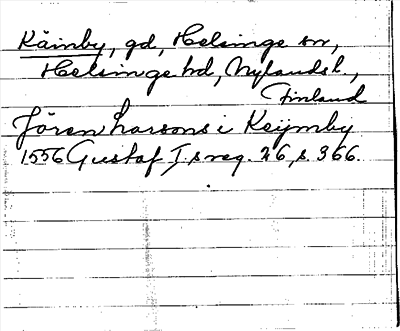 Käinby, gd, Helsinge sn,
Helsinge hd, Nylands l.,
Finland
Jören Larsons i Keijmby
1556 Gustaf I:s reg. 26, s. 366.